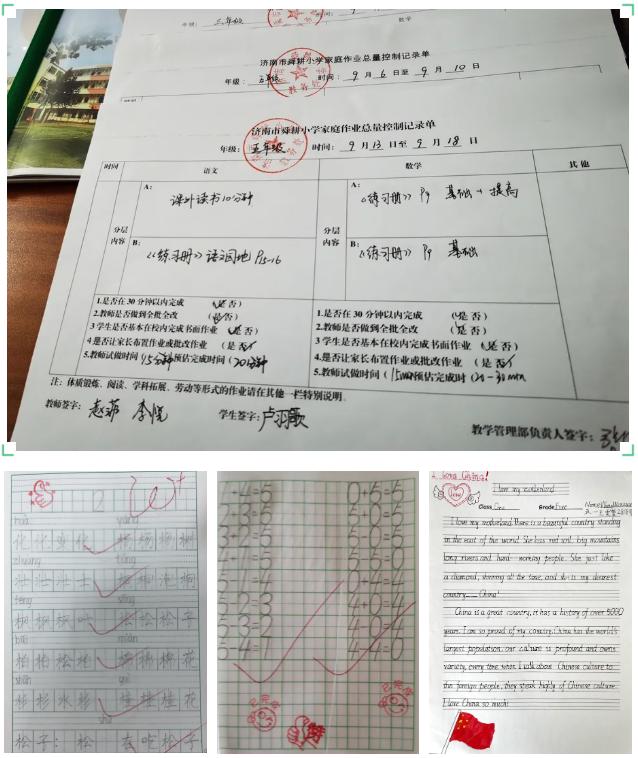 年级: 三年级
数学
济南市舜耕小学家庭作业总量控制记录单
年级: 五年级 时间: 9 月 6 日至 9 月 10 日
济南市舜耕小学家庭作业总量控制记录单
年级: 五年级 时间: 9 月 13 日至 9 月 18 日
时间 语文 数学 其他
分层内容
A: 课外读书10分钟
A: 《练习册》 P9 基础+提高
B: 《练习册》语文园地 P15-16
B: 《练习册》 P9 基础
1.是否在30分钟以内完成 (是 否)
2.教师是否做到全批全改 (是 否)
3 学生是否基本在校内完成书面作业 (是 否)
4.是否让家长布置作业或批改作业 (是 否)
5.教师试做时间(15分钟 预估完成时间(20分钟
1.是否在30分钟以内完成 (是 否)
2.教师是否做到全批全改 (是 否)
3 学生是否基本在校内完成书面作业 (是 否)
4.是否让家长布置作业或批改作业 (是 否)
5.教师试做时间(15min 预估完成时(20-30min
注: 体质锻炼、阅读、学科拓展、劳动等形式的作业请在其他一栏特别说明。
教师签字: 赵菲 李悦 学生签字: 卢羽歌
教学管理部负责人签字:
huà yáng
化 化 变 化 杨 杨 杨 树
zhuàng
壮 壮 壮 士
fēng
枫 枫 枫 叶 松 松 松 子
bǎi mián
柏 柏 松 柏 棉 棉 棉 花
shān guì
杉 杉 水 杉 桂 桂 桂 花
松子: 松 在吃松子
+4=5 0+5=5
5+0=5
0+5=5
5-0=5
5-5=0
0+4=4
4+0=4
5-3=2 4-0=4
5-4=1 4-4=0
I love my motherland
Class Grade Five Name
I love my motherland. There is a beautiful country standing
in the east of the world. She has red soil, big mountains
long rivers and hard-working people. She just like
a diamond, shining all the time, and she is my dearest
country — China!
China is a great country, it has a history of over 5000
years. I am so proud of my country. China has the world's
largest population, our culture is profound and owns
variety, every time when I talk about Chinese culture to
the foreign people, they speak highly of Chinese culture.
I love China so much!